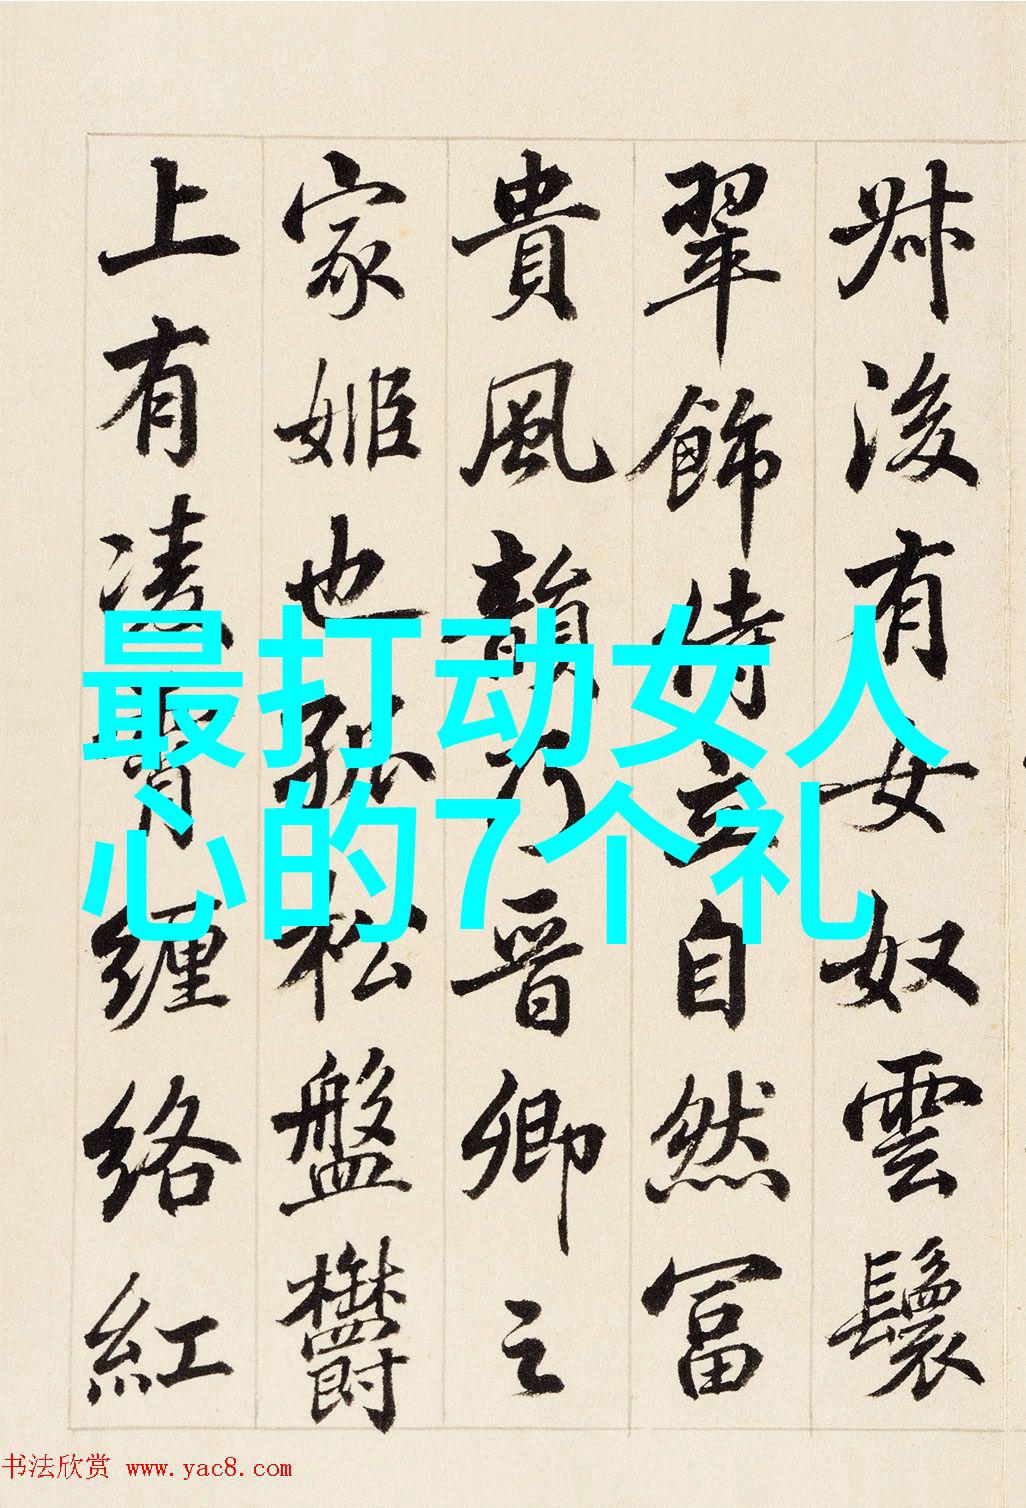 叔後有女奴雲鬟
翠飾侍立自然冨
貴風韻乃晉卿之
家姬也孤松盤鬱
上有凌霄纏絡紅
最打动女人
心的7个礼
书法欣赏 www.yac8.com